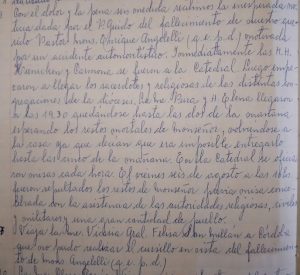 3) Con el dolor y la pena sin medida recibimos la inesperada no-
ticia dada por el P. Guido del fallecimiento de nuestro que-
rido Pastor Mons. Enrique Angelelli (q. e. p. d.) motivada
por un accidente automovilístico. Inmediatamente las H.H.
y Carmona se fueron a la Catedral. Luego empe-
zaron a llegar los sacerdotes y religiosas de las distintas con-
gregaciones de la diócesis, la Me. Pura y H. Elena llegaron
a las 19,30 quedándose hasta las dos de la mañana
esperando los restos mortales de monseñor, volviéndose a
la casa ya que decían que era imposible entregarlo
hasta las cinco de la mañana. En la Catedral se oficia-
ron misas cada hora. El viernes seis de agosto a las 16 hs.
fueron sepultados los restos de monseñor previa misa conce-
lebrada con la asistencia de las autoridades religiosas, civiles
y militares y una gran cantidad de pueblo.
Viajar la Me. Vicaria Gral. Felisa a Córdoba
que no pudo realizar el cursillo en vista del fallecimien-
to de Mons. Angelelli (q. e. p. d.)